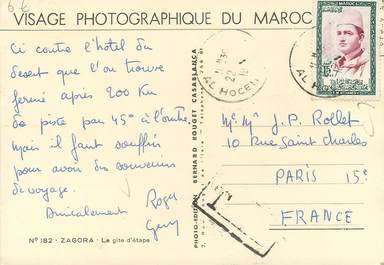 6 €
VISAGE PHOTOGRAPHIQUE DU MAROC
Ci contre l'hôtel du
desert que l'on trouve
fermé après 200 Km
de piste par 45° à l'ombre
mais il faut souffrir
pour avoir des souvenirs
de voyage.
Amicalement Roger
N° 182 - ZAGORA - Le gîte d'étape
PHOTO-EDITION BERNARD ROUGET CASABLANCA
22
AL HOCEIMA
AL HOCEIMA
Mr Me J.P. Rollet
10 Rue Saint Charles
PARIS 15e
FRANCE
T